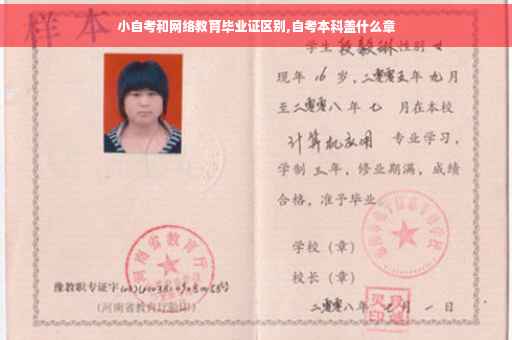 小自考和网络教育毕业证区别,自考本科盖什么章
样本
学生段毅琳性别女
现年16岁,二零零五年九月
至二零零八年七月在本校
计算机应用专业学习,
学制三年,修业期满,成绩
合格,准予毕业
学校(章)
校长(章)
二零零八年七月一日
河南省教育厅
豫教职专证字
(河南省教育厅验印)